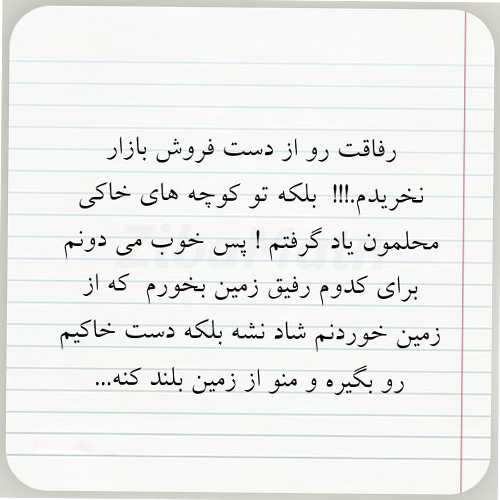 رفاقت رو از دست فروش بازار
نخریدم.!!! بلکه تو کوچه های خاکی
محلمون یاد گرفتم ! پس خوب می دونم
برای کدوم رفیق زمین بخورم که از
زمین خوردنم شاد نشه بلکه دست خاکیم
رو بگیره و منو از زمین بلند کنه...